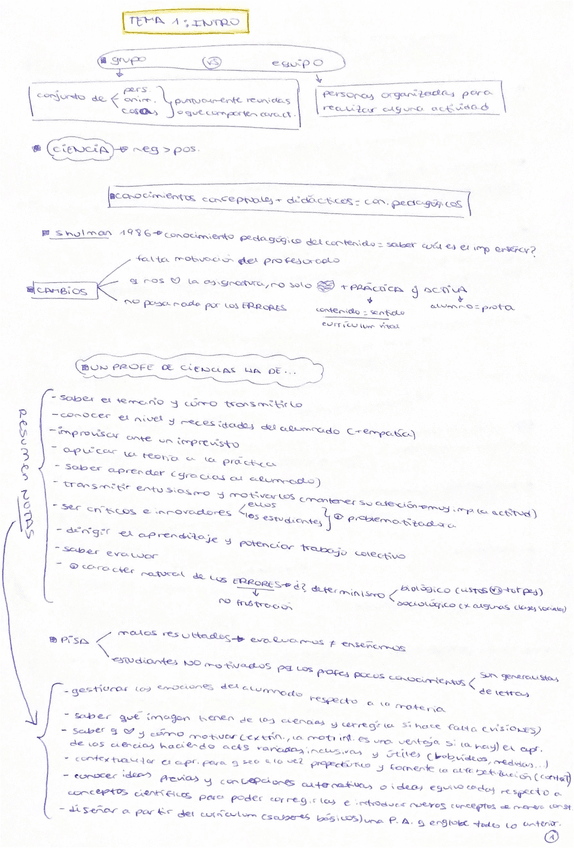 TEMA 1: INTRO
grupo VS equipo
conjunto de pers. anim. cosas puntualmente reunidas o que comparten caract.
personas organizadas para realizar alguna actividad
CIENCIA → neg > pos.
conocimientos conceptuales + didácticos = con. pedagógicos
Shulman 1986 → conocimiento pedagógico del contenido = saber cuál es el imp enseñar?
CAMBIOS
falta motivación del profesorado
q nos ♡ la asignatura, no solo + PRÁCTICA y ACTIVA
contenido = sentido
curriculum vital
alumno = prota
no pasa nada por los ERRORES
UN PROFE DE CIENCIAS HA DE...
RESUMEN NOTAS
- saber el temario y cómo transmitirlo
- conocer el nivel y necesidades del alumnado (+ empatía)
- improvisar ante un imprevisto
- aplicar la teoría a la práctica
- saber aprender (gracias al alumnado)
- transmitir entusiasmo y motivarlos (mantener su atención → muy imp la actitud)
- ser críticos e innovadores ellos los estudiantes problematizadora
- dirigir el aprendizaje y potenciar trabajo colectivo
- saber evaluar
- caracter natural de los ERRORES → ¿? determinismo
no frustración
biológico (listos VS torpes)
sociológico (x algunas clases sociales)
PISA
malos resultados → evaluamos ≠ enseñamos
estudiantes NO motivados pq los profes pocos conocimientos
son generalistas
de letras
- gestionar las emociones del alumnado respecto a la materia
- saber qué imagen tienen de las ciencias y corregirla si hace falta (visiones)
- saber q ♡ y cómo motivar (extrín., la motiv. int. es una ventaja si la hay) el apr. de las ciencias haciendo acts variadas, inclusivas y útiles
- contextualizar el apr. para q sea a la vez propedéutico y fomente la alfabetización (context)
- conocer ideas previas y concepciones alternativas o ideas equivocadas respecto a conceptos científicos para poder corregirlas e introducir nuevos conceptos de manera const.
- diseñar a partir del currículum (saberes básicos) una P.A. q englobe todo lo anterior.
1